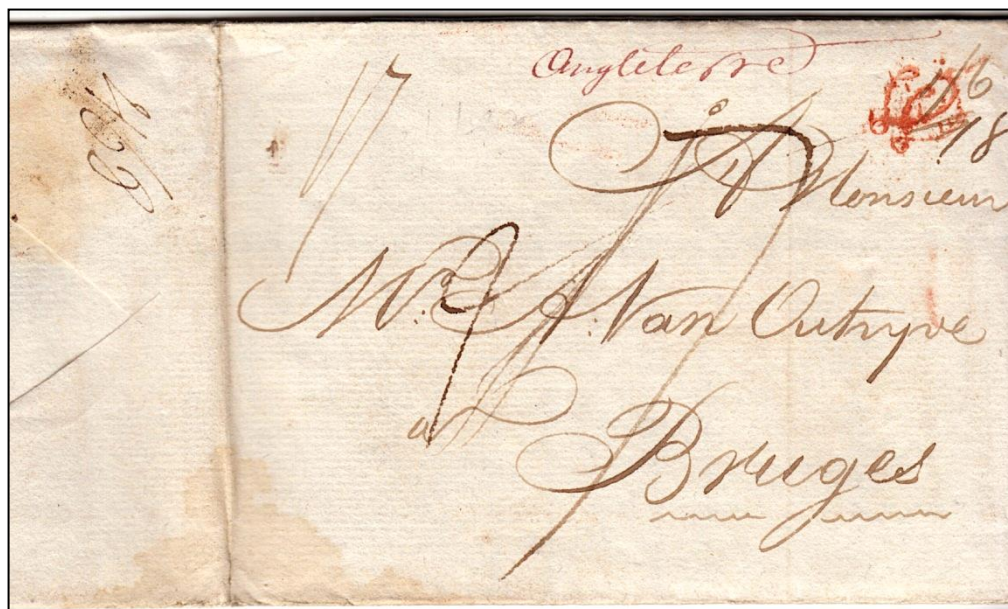 Angleterre
1/6
18
A Monsieur
Mr. A: Van Outryve
a
Bruges